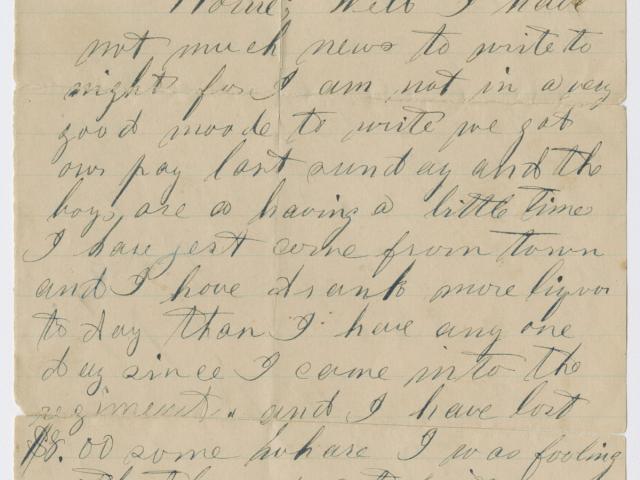 Home, Well I have
not much news to write to
night for I am not in a very
good moode to write we got
our pay last sunday and the
boys are a having a little time
I have jest come from town
and I have drank more liquor
to day than I have any one
day since I came into the
regiment. and I have lost
$8.00 some whare I was fooling